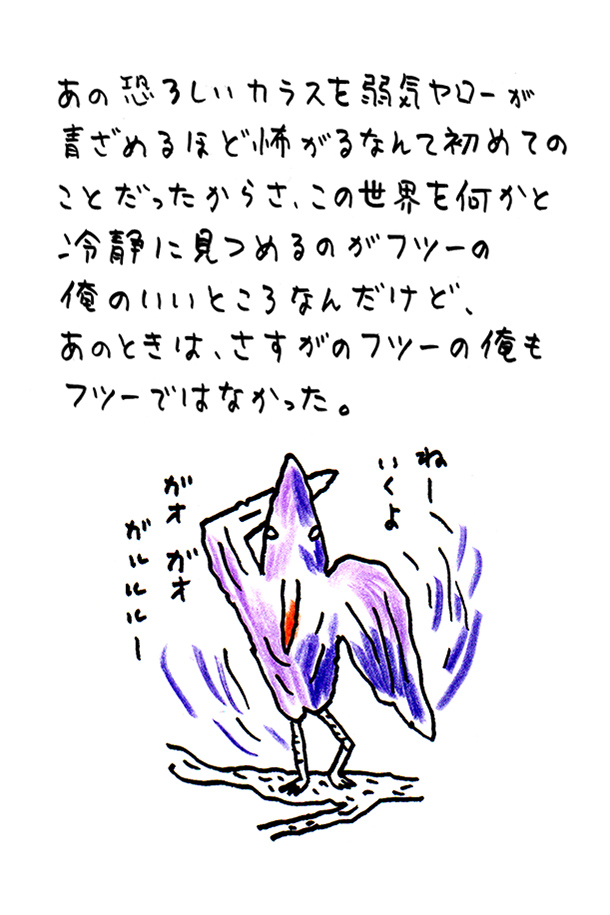 あの恐ろしいカラスを弱気ヤローが
青ざめるほど怖がるなんて初めての
ことだったからさ、この世界を何かと
冷静に見つめるのがフツーの
俺のいいところなんだけど、
あのときは、さすがのフツーの俺も
フツーではなかった。
ねー
いくよ
ガオ ガオ
ガルルルー